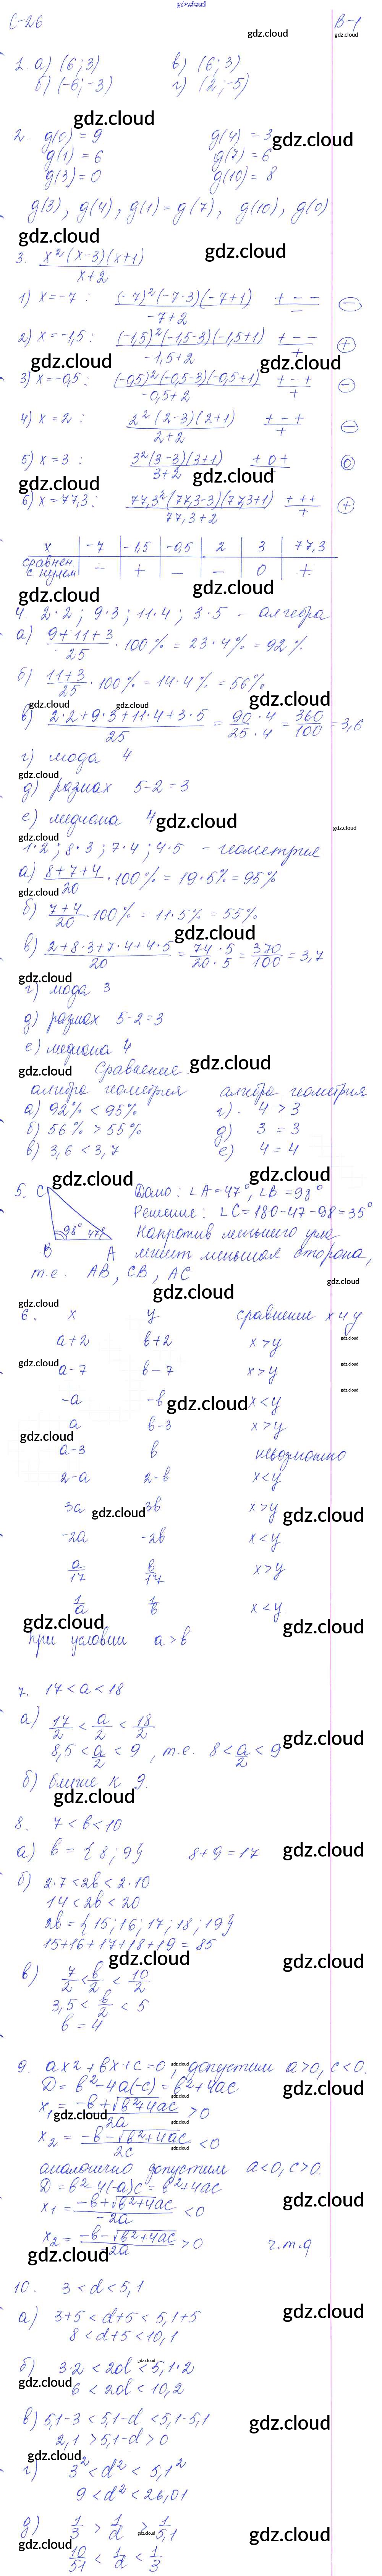 gdz.cloud
С-26 В-1
gdz.cloud gdz.cloud
1. а) (6; 3) в) (6; 3)
б) (-6; -3) г) (2; -5)
gdz.cloud
2. g(0) = 9 g(4) = 3 gdz.cloud
g(1) = 6 g(7) = 6
g(3) = 0 g(10) = 8
g(3), g(4), g(1) = g(7), g(10), g(0)
gdz.cloud gdz.cloud
3. x²(x-3)(x+1)
x+2
1) x = -7 : (-7)²(-7-3)(-7+1) + - - -
-7+2 -
2) x = -1,5 : (-1,5)²(-1,5-3)(-1,5+1) + - - +
-1,5+2 +
gdz.cloud gdz.cloud
3) x = -0,5 : (-0,5)²(-0,5-3)(-0,5+1) + - + -
-0,5+2 +
4) x = 2 : 2²(2-3)(2+1) + - + -
2+2 +
5) x = 3 : 3²(3-3)(3+1) + 0 + 0
3+2 +
gdz.cloud gdz.cloud
6) x = 77,3 : 77,3²(77,3-3)(77,3+1) + + + +
77,3+2 +
x -7 -1,5 -0,5 2 3 77,3
сравнен с нулем - + - - 0 +
gdz.cloud gdz.cloud
4. 2·2 ; 9·3 ; 11·4 ; 3·5 - алгебра
а) 9+11+3 · 100% = 23·4% = 92%
25
б) 11+3 · 100% = 14·4% = 56%
25
gdz.cloud gdz.cloud gdz.cloud
в) 2·2+9·3+11·4+3·5 = 90·4 = 360 = 3,6
25 25·4 100
г) мода 4
gdz.cloud
д) размах 5-2=3
е) медиана 4
gdz.cloud gdz.cloud
gdz.cloud
1·2 ; 8·3 ; 7·4 ; 4·5 - геометрия
а) 8+7+4 · 100% = 19·5% = 95%
20
gdz.cloud
б) 7+4 · 100% = 11·5% = 55%
20
gdz.cloud
в) 2+8·3+7·4+4·5 = 74·5 = 370 = 3,7
20 20·5 100
gdz.cloud
г) мода 3
д) размах 5-2=3
е) медиана 4
gdz.cloud Сравнение gdz.cloud
алгебра геометрия алгебра геометрия
а) 92% < 95% г) 4 > 3
б) 56% > 55% д) 3 = 3
в) 3,6 < 3,7 е) 4 = 4
gdz.cloud gdz.cloud
5. C Дано: ∠A = 47°, ∠B = 98°
Решение: ∠C = 180-47-98 = 35°
98° 47° Напротив меньшего угла
B A лежит меньшая сторона,
т.е. AB, CB, AC
gdz.cloud
gdz.cloud
gdz.cloud
6. x y сравнение x и y
a+2 b+2 x>y
gdz.cloud
a-7 b-7 x>y
-a -b x<y
gdz.cloud
a b-3 x>y
gdz.cloud
a-3 b невозможно
2-a 2-b x<y
3a 3b x>y
gdz.cloud gdz.cloud
-2a -2b x<y
a b x>y
17 17
1 1 x<y
a b
gdz.cloud gdz.cloud
при условии a>b
7. 17 < a < 18
а) 17 < a < 18
2 2 2
gdz.cloud
8,5 < a/2 < 9, т.е. 8 < a/2 < 9
б) ближе к 9.
gdz.cloud
8. 7 < b < 10
а) b = {8; 9} 8+9=17
gdz.cloud
б) 2·7 < 2b < 2·10
14 < 2b < 20
2b = {15; 16; 17; 18; 19}
15+16+17+18+19 = 85
gdz.cloud gdz.cloud
в) 7 < b < 10
2 2 2
3,5 < b/2 < 5
b = 4
9. ax2+bx+c=0, допустим a>0, c<0.
gdz.cloud
D = b²-4a(-c) = b²+4ac
gdz.cloud
x₁ = -b+√b²+4ac > 0
2a
gdz.cloud
x₂ = -b-√b²+4ac < 0
2c
аналогично допустим a<0, c>0.
D = b²-4(-a)c = b²+4ac
gdz.cloud
x₁ = -b+√b²+4ac < 0
-2a
x₂ = -b-√b²+4ac > 0 ч.т.д
-2a
gdz.cloud
10. 3 < d < 5,1
а) 3+5 < d+5 < 5,1+5
gdz.cloud
8 < d+5 < 10,1
б) 3·2 < 2d < 5,1·2
gdz.cloud
6 < 2d < 10,2
в) 5,1-3 < 5,1-d < 5,1-5,1
gdz.cloud
2,1 > 5,1-d > 0
gdz.cloud
г) 3² < d² < 5,1²
9 < d² < 26,01
д) 1 > 1 > 1
3 d 5,1
gdz.cloud gdz.cloud
10 < 1 < 1
51 d 3